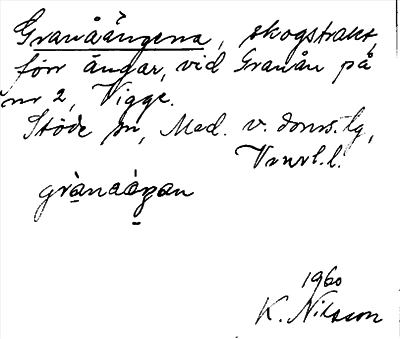 Granåängena, skogstrakt,
förr ängar, vid Granån på
nr 2, Vigge.
Stöde sn, Med. v. doms.lg,
Vnorl.l.
grànaáŋan
1960
K. Nilsson